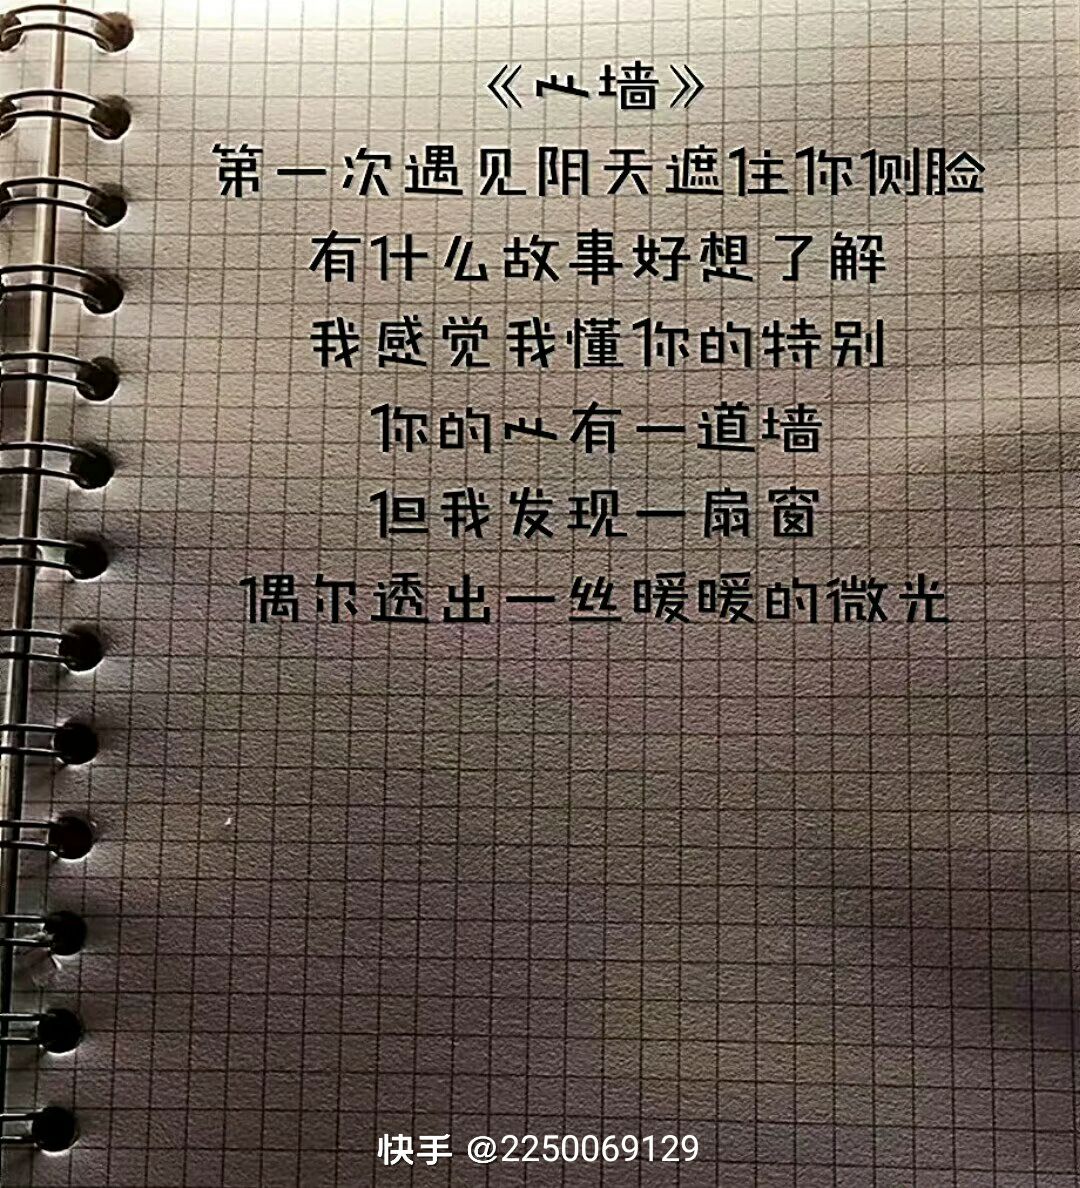 《心墙》
第一次遇见阴天遮住你侧脸
有什么故事好想了解
我感觉我懂你的特别
你的心有一道墙
但我发现一扇窗
偶尔透出一丝暖暖的微光
快手 @2250069129